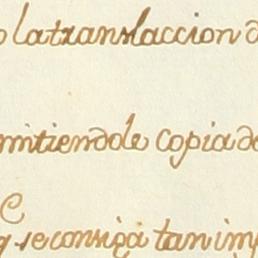 o la translaccion d
mitiendole copia de
q. se consiga tan imp